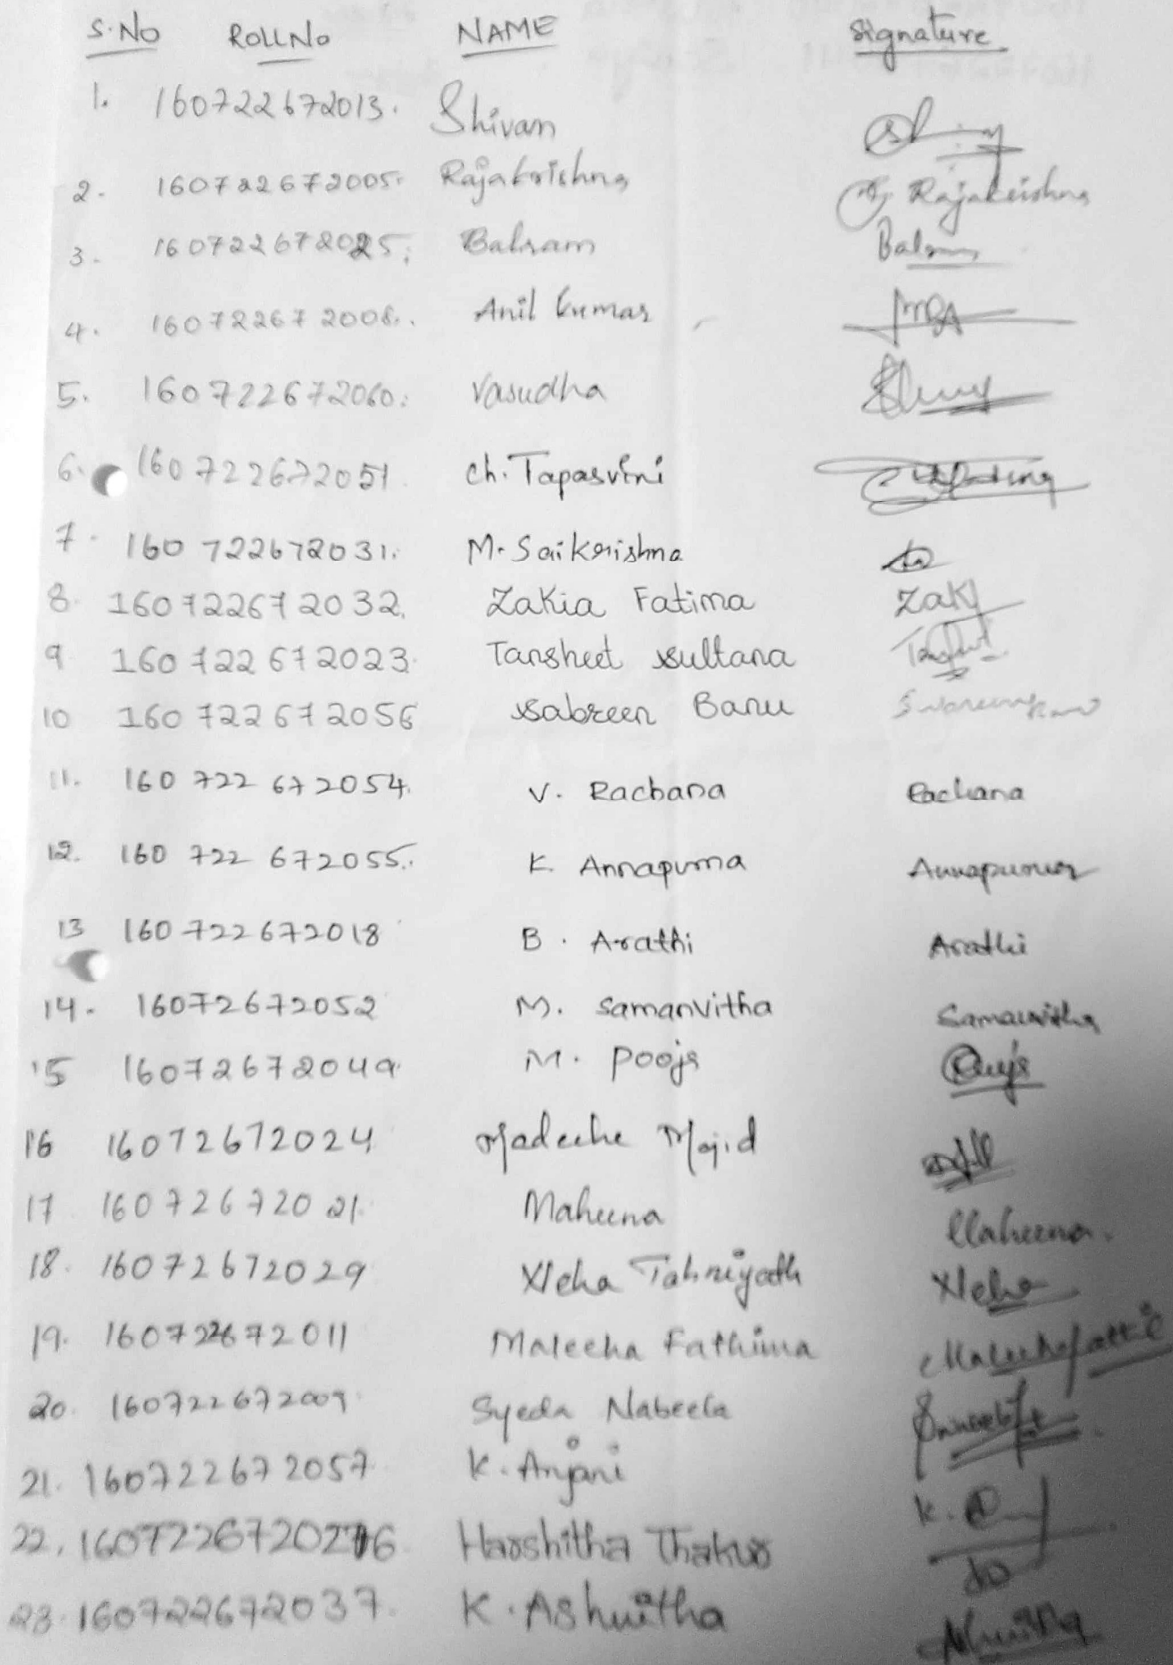 S.No ROLLNo NAME Signature
1. 160722672013. Shivam
2. 160722672005. Rajakrishna Rajakrishna
3. 160722672025. Balram Balram
4. 160722672008. Anil kumar
5. 160722672060. Vasudha
6. 160722672051 Ch. Tapasvini
7. 160722672031. M. Saikrishna
8. 160722672032. Zakia Fatima ZAKI
9 160722672023. Tansheet sultana
10 160722672056 Sabreen Banu
11. 160722672054. V. Rachana Rachana
12. 160722672055. K. Annapurna Annapurna
13 160722672018 B. Arathi Arathi
14. 16072672052 M. Samanvitha Samanvitha
15 16072672049. M. Pooja
16 16072672024 Madeeha Majid
17 16072672021. Maheena Maheena.
18. 16072672029 Neha Tahniyath Neha
19. 160722672011 Maleeha Fathima
20. 160722672009. Syeda Nabeela
21. 160722672057. K. Anjani
22. Harshitha Thakur
23. 160722672037. K. Ashwitha Ashwitha